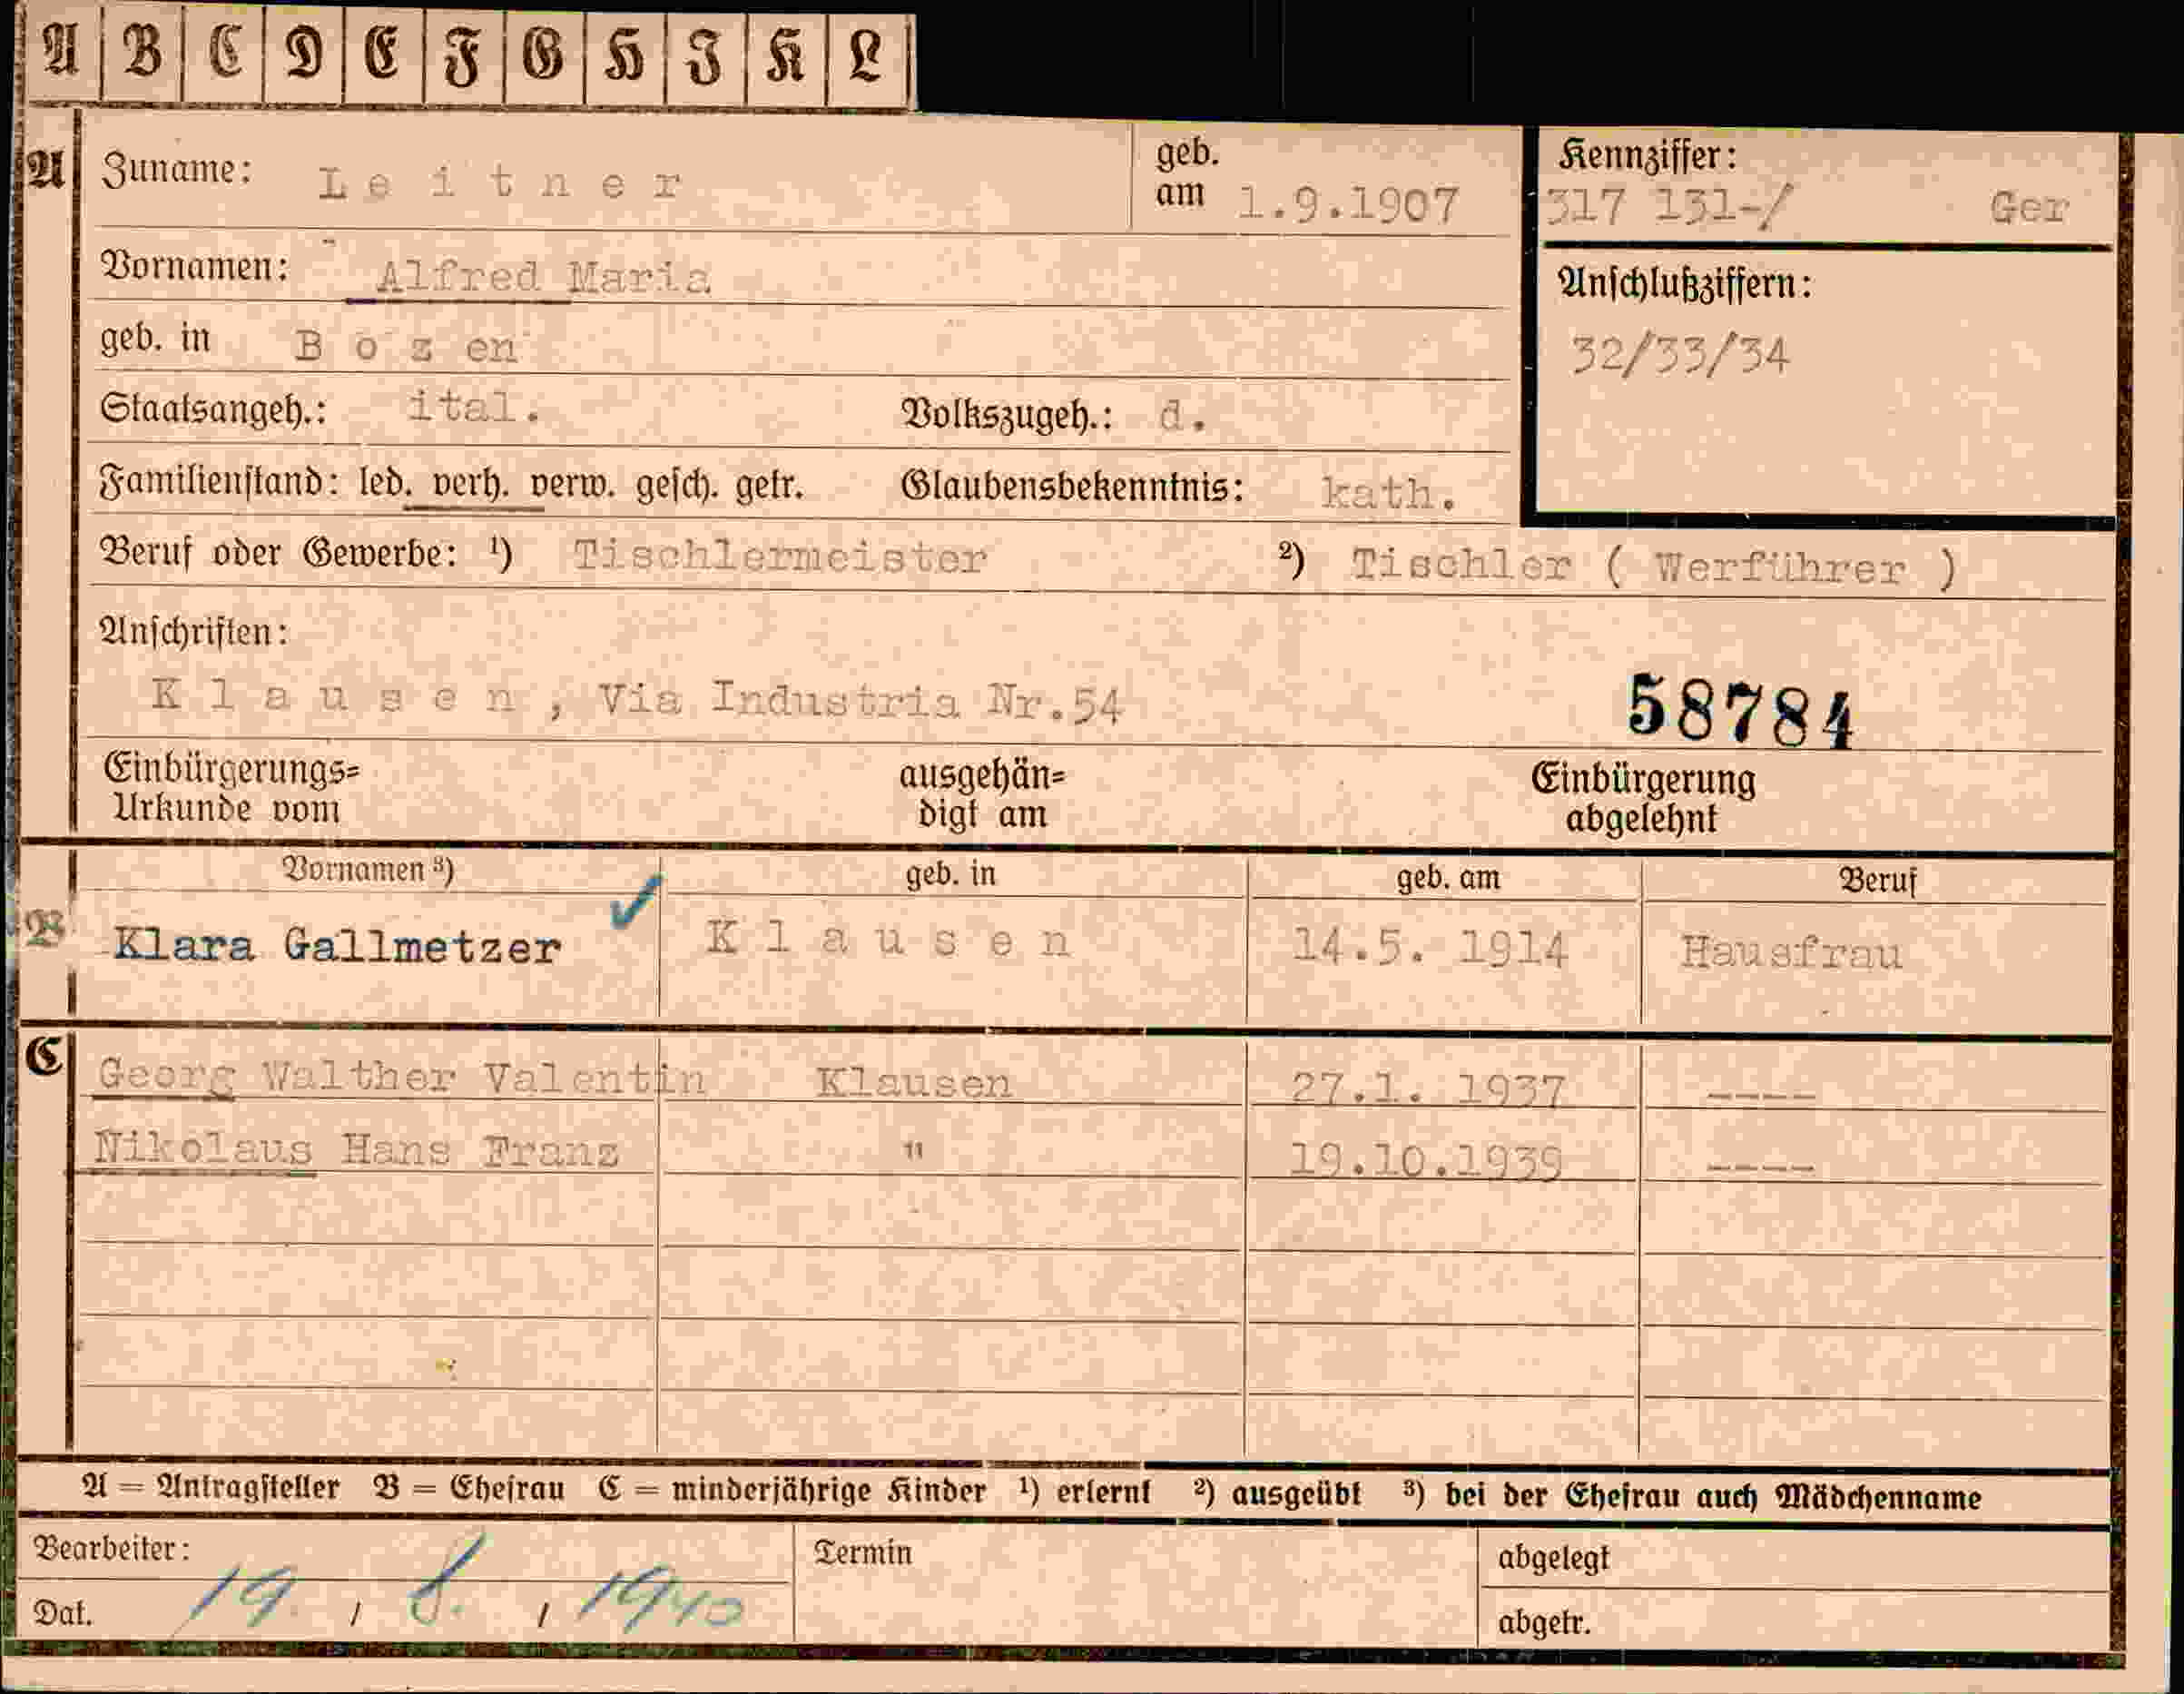 A B C D E F G H I K L
A Zuname: Leitner geb. am 1.9.1907 Kennziffer: 317 131-/ Ger
Vornamen: Alfred Maria Anschlußziffern:
geb. in Bozen 32/33/34
Staatsangeh.: ital. Volkszugeh.: d.
Familienstand: led. verh. verw. gesch. getr. Glaubensbekenntnis: kath.
Beruf oder Gewerbe: ¹) Tischlermeister ²) Tischler ( Werführer )
Anschriften:
Klausen, Via Industria Nr.54 58784
Einbürgerungs= ausgehän= Einbürgerung
Urkunde vom digt am abgelehnt
Vornamen ³) geb. in geb. am Beruf
B Klara Gallmetzer ✓ Klausen 14.5. 1914 Hausfrau
C Georg Walther Valentin Klausen 27.1. 1937 ----
Nikolaus Hans Franz " 19.10.1939 ----
A = Antragsteller B = Ehefrau C = minderjährige Kinder ¹) erlernt ²) ausgeübt ³) bei der Ehefrau auch Mädchenname
Bearbeiter: Termin abgelegt
Dat. 19. / 8. / 1940 abgetr.